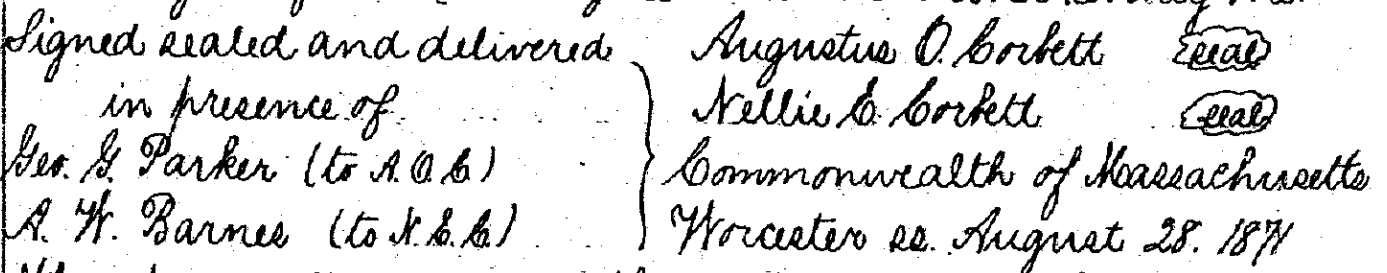 Signed sealed and delivered
in presence of
Geo. G. Parker (to A. O. C)
A. W. Barnes (to N. E. C.)
Augustus O. Corbett seal
Nellie E. Corbett seal
Commonwealth of Massachusetts
Worcester ss. August 28. 1871